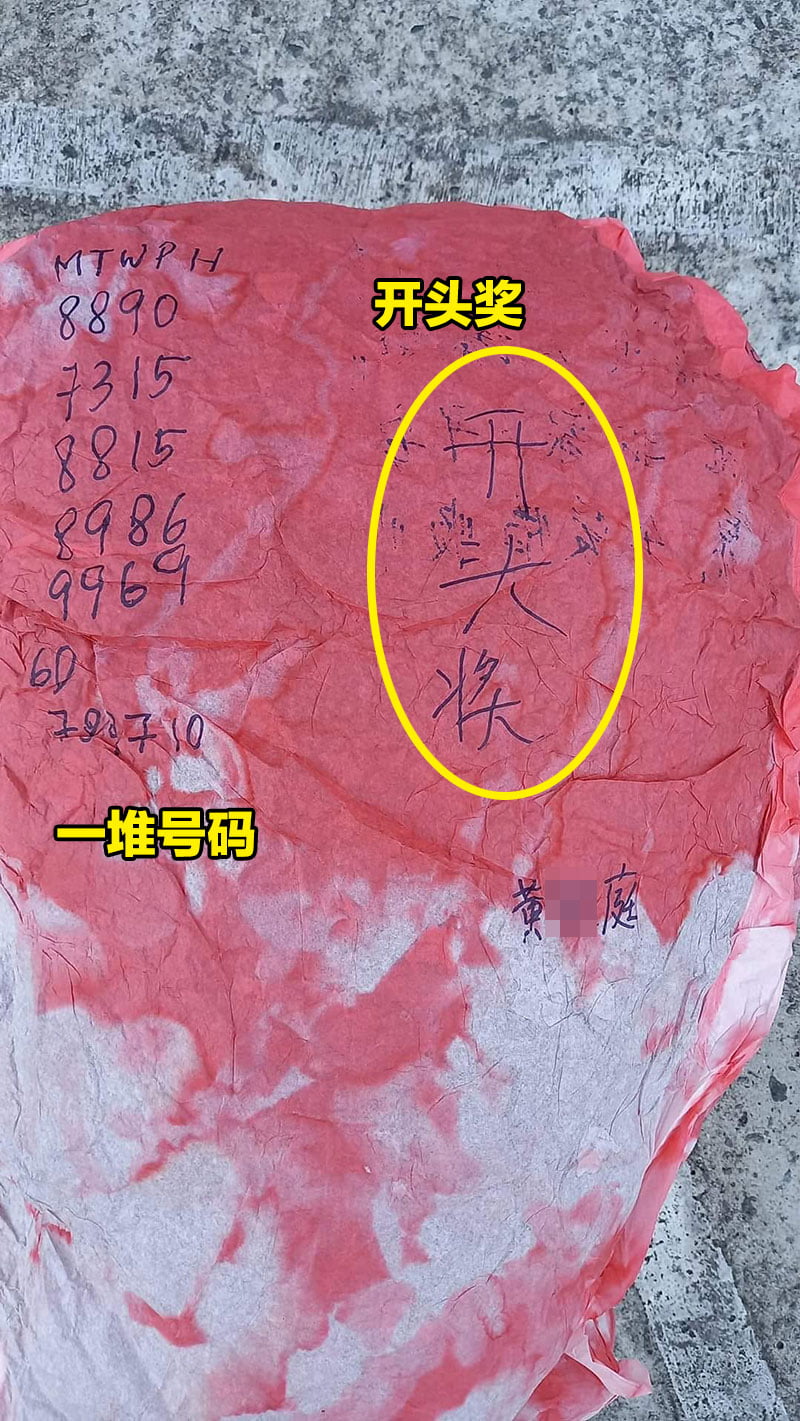 MTWPH
8890
7315
8815
8986
9969
6D
一堆号码
开头奖
开
头
奖
黄 庭